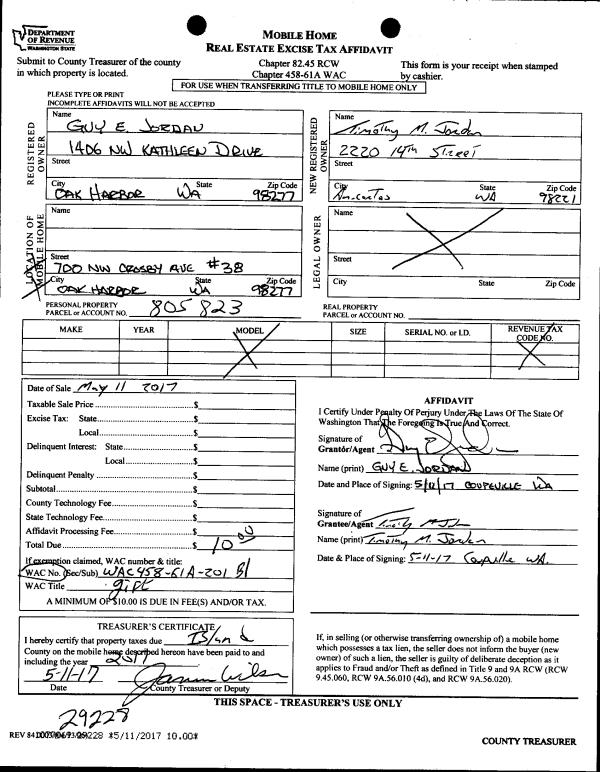 DEPARTMENT
OF REVENUE
WASHINGTON STATE
MOBILE HOME
REAL ESTATE EXCISE TAX AFFIDAVIT
Submit to County Treasurer of the county
in which property is located.
Chapter 82.45 RCW
Chapter 458-61A WAC
This form is your receipt when stamped
by cashier.
FOR USE WHEN TRANSFERRING TITLE TO MOBILE HOME ONLY
PLEASE TYPE OR PRINT
INCOMPLETE AFFIDAVITS WILL NOT BE ACCEPTED
REGISTERED
OWNER
Name
GUY E. JORDAN
1406 NW KATHLEEN DRIVE
Street
City State Zip Code
OAK HARBOR WA 98277
NEW REGISTERED
OWNER
Name
Timothy M. Jordan
2220 14th Street
Street
City State Zip Code
Anacortes WA 98221
LOCATION OF
MOBILE HOME
Name
Street
700 NW CROSBY AVE #38
City State Zip Code
OAK HARBOR WA 98277
LEGAL OWNER
Name
Street
City State Zip Code
PERSONAL PROPERTY
PARCEL or ACCOUNT NO. 805823
REAL PROPERTY
PARCEL or ACCOUNT NO.
MAKE YEAR MODEL SIZE SERIAL NO. or I.D. REVENUE TAX
CODE NO.
Date of Sale May 11 2017
Taxable Sale Price $
Excise Tax: State $
Local $
Delinquent Interest: State $
Local $
Delinquent Penalty $
Subtotal $
County Technology Fee $
State Technology Fee $
Affidavit Processing Fee $
Total Due $ 10.00
If exemption claimed, WAC number & title:
WAC No. (Sec/Sub) WAC458-61A-201 B1
WAC Title gift
A MINIMUM OF $10.00 IS DUE IN FEE(S) AND/OR TAX.
AFFIDAVIT
I Certify Under Penalty Of Perjury Under The Laws Of The State Of
Washington That The Foregoing Is True And Correct.
Signature of
Grantor/Agent
Name (print) GUY E. JORDAN
Date and Place of Signing: 5/12/17 COUPEVILLE WA
Signature of
Grantee/Agent
Name (print) Timothy M. Jordan
Date & Place of Signing: 5-11-17 Coupeville WA.
TREASURER'S CERTIFICATE
I hereby certify that property taxes due Island
County on the mobile home described hereon have been paid to and
including the year 2017
5-11-17
Date County Treasurer or Deputy
If, in selling (or otherwise transferring ownership of) a mobile home
which possesses a tax lien, the seller does not inform the buyer (new
owner) of such a lien, the seller is guilty of deliberate deception as it
applies to Fraud and/or Theft as defined in Title 9 and 9A RCW (RCW
9.45.060, RCW 9A.56.010 (4d), and RCW 9A.56.020).
THIS SPACE - TREASURER'S USE ONLY
29228
29228 *5/11/2017 10.00*
COUNTY TREASURER